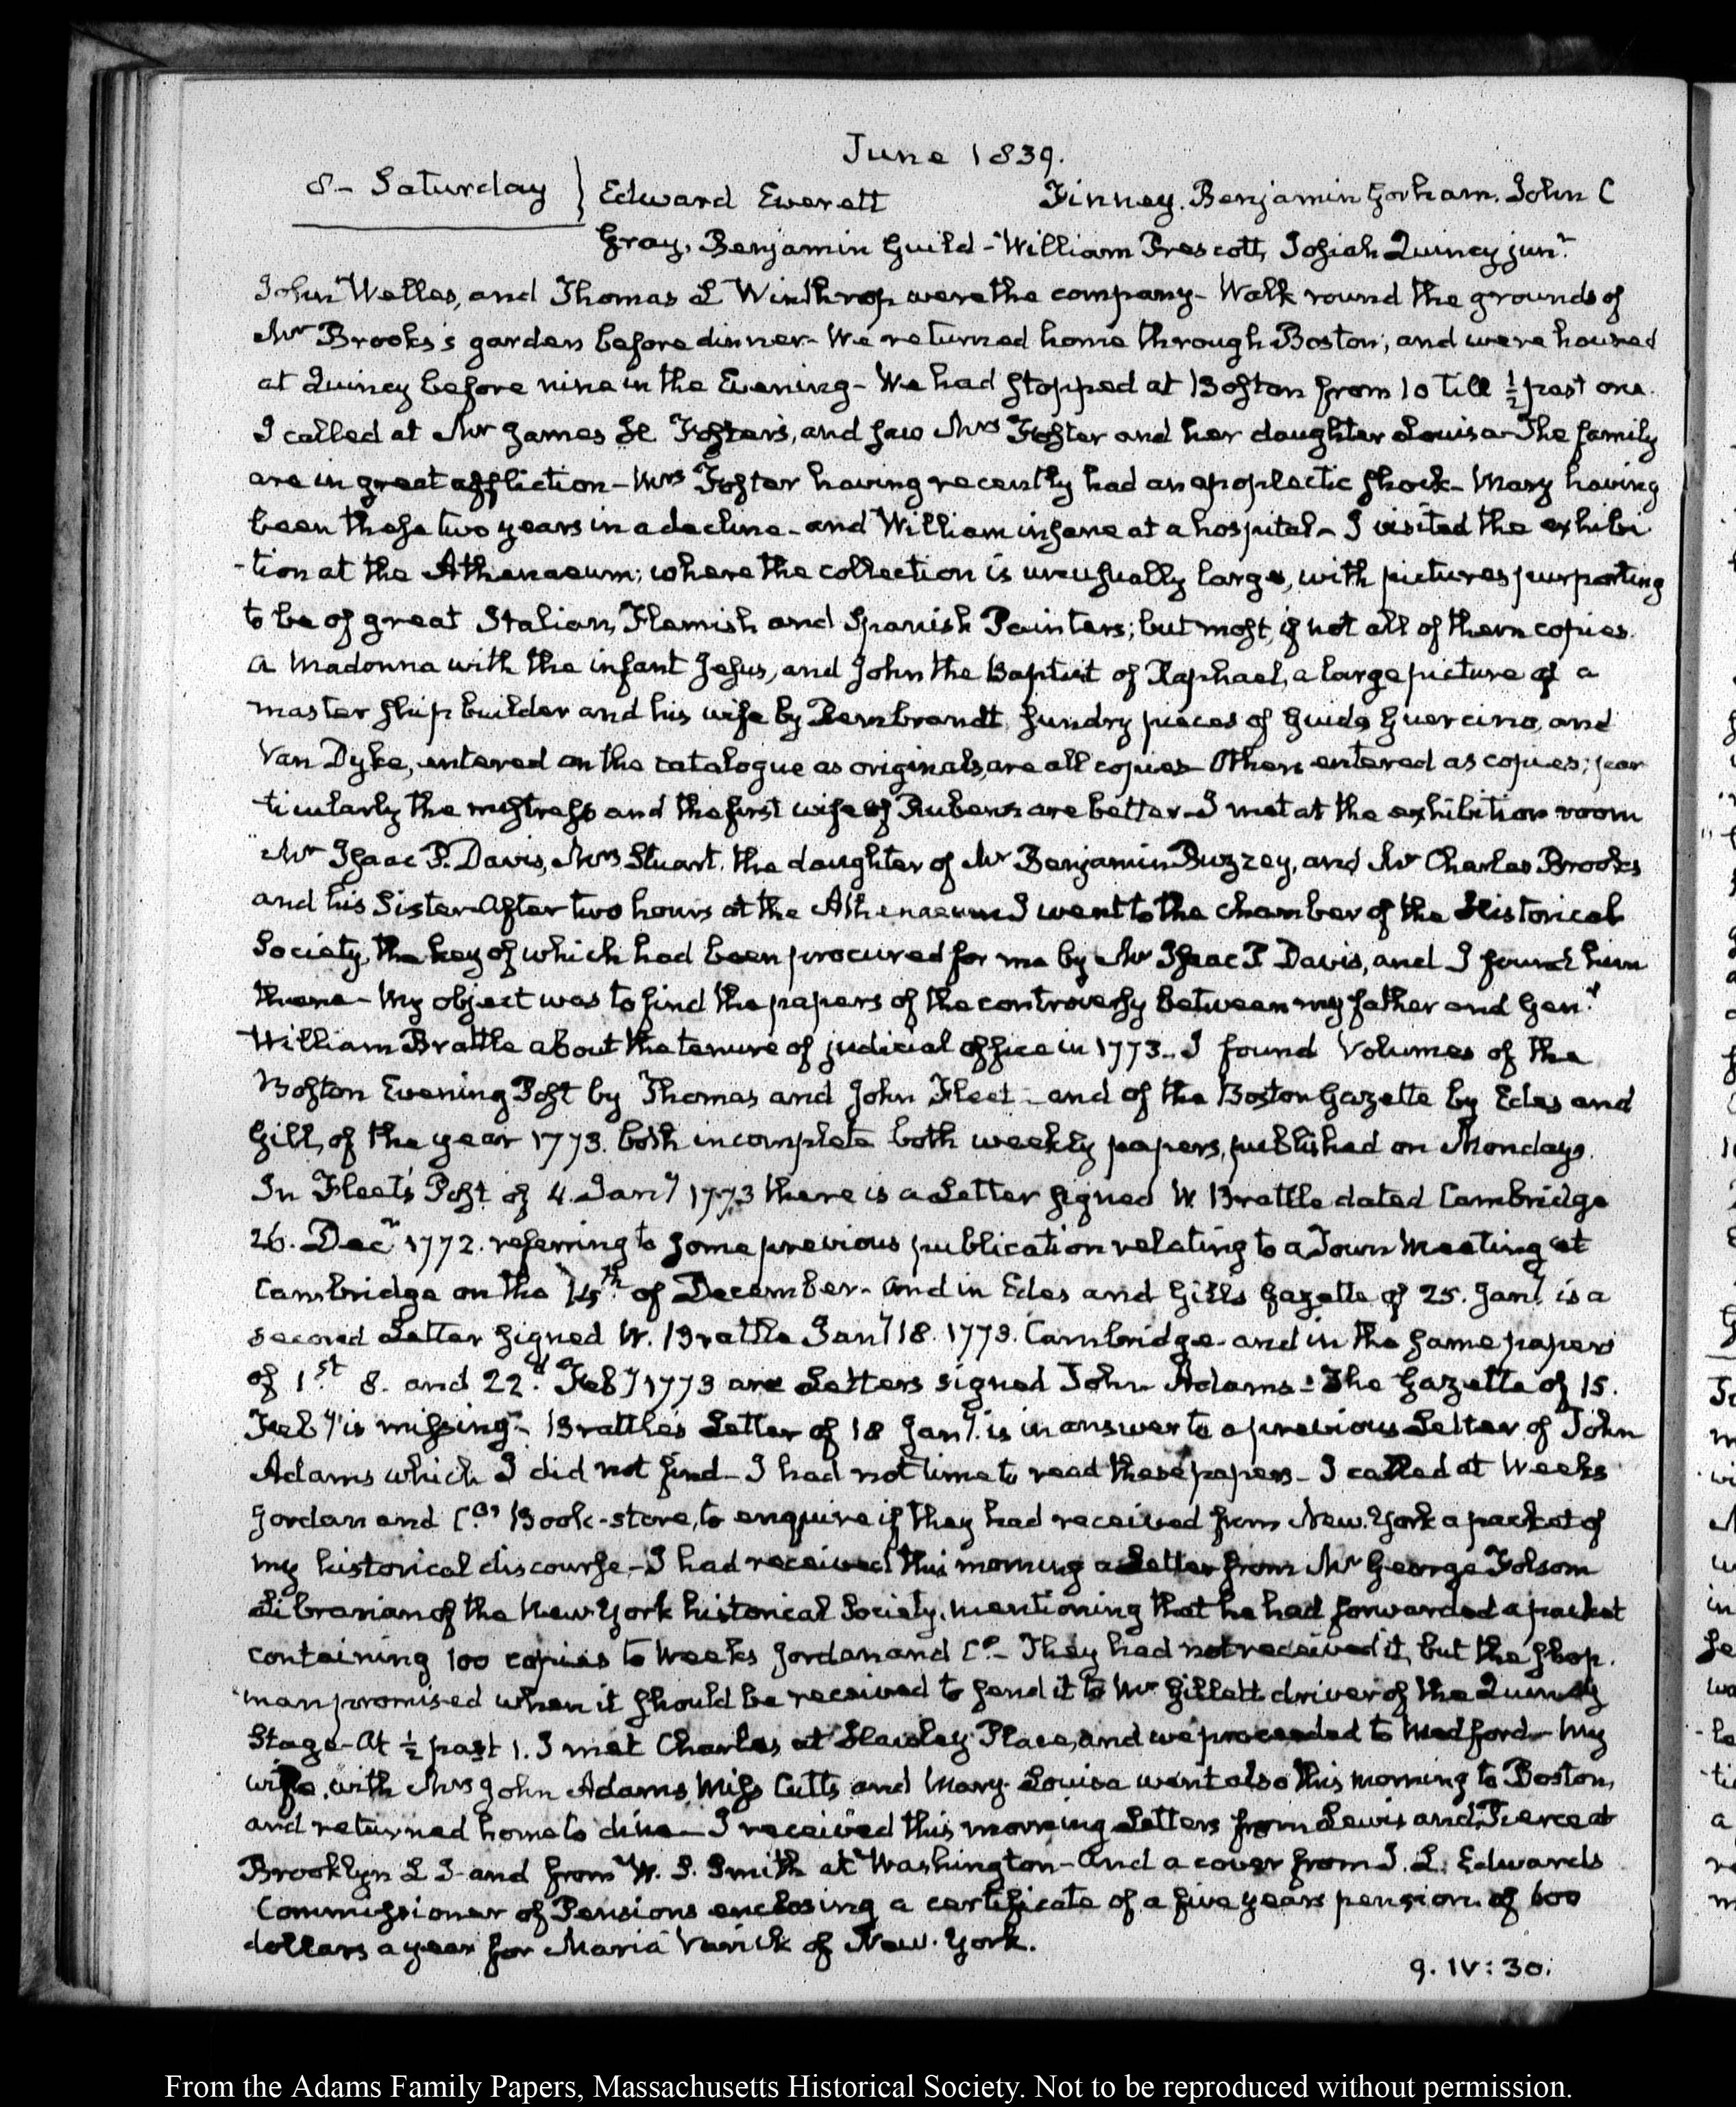 June 1839.
8- Saturday } Edward Everett Finney. Benjamin Gorham. John C
Gray, Benjamin Guild - William Prescott, Josiah Quincy junr.
John Welles, and Thomas L Winthrop were the company- Walk round the grounds of
Mr Brooks's garden before dinner- We returned home through Boston, and were housed
at Quincy before nine in the Evening- We had stopped at Boston from 10 till ½ past one.
I called at Mr James H Foster's, and saw Mrs Foster and her daughter Louisa- The family
are in great affliction- Mrs Foster having recently had an apoplectic shock- Mary having
been these two years in a decline- and William insane at a hospital- I visited the exhibi
-tion at the Athenaeum; where the collection is unusually large, with pictures purporting
to be of great Italian, Flemish and Spanish Painters; but most, if not all of them copies.
A Madonna with the infant Jesus, and John the Baptist of Raphael, a large picture of a
master ship builder and his wife by Rembrandt, sundry pieces of Guido Guercino, and
Van Dyke, entered on the catalogue as originals, are all copies- Others entered as copies; par
ticularly the mistress and the first wife of Rubens are better- I met at the exhibition room
Mr Isaac P. Davis, Mrs Stuart. the daughter of Mr Benjamin Buzzey, and Mr Charles Brooks
and his Sister- After two hours at the Athenaeum I went to the chamber of the Historical
Society, the key of which had been procured for me by Mr Isaac P Davis, and I found him
there- My object was to find the papers of the controversy between my father and Genl.
William Brattle about the tenure of judicial office in 1773- I found Volumes of the
Boston Evening Post by Thomas and John Fleet- and of the Boston Gazette by Edes and
Gill, of the year 1773. both incomplete both weekly papers, published on Mondays.
In Fleet's Post of 4. Jany 1773 there is a Letter signed W. Brattle dated Cambridge
26. Decr 1772. referring to some previous publication relating to a Town Meeting at
Cambridge on the 14th. of December- And in Edes and Gill's Gazette of 25. Jany. is a
second Letter signed W. Brattle Jany 18. 1773. Cambridge- and in the same papers
of 1st. 8. and 22d. Feby 1773 are Letters signed John Adams- The Gazette of 15.
Feby is missing- Brattle's Letter of 18 Jany. is in answer to a previous Letter of John
Adams which I did not find- I had not time to read these papers- I called at Weeks
Jordan and Co's Book-store, to enquire if they had received from New-York a packet of
my historical discourse- I had received this morning a Letter from Mr George Folsom
Librarian of the New York historical Society. mentioning that he had forwarded a packet
containing 100 copies to Weeks Jordan and Co- They had not received it, but the shop.
man promised when it should be received to send it to Mr Gillett driver of the Quincy
Stage- At ½ past 1. I met Charles at Place, and we proceeded to Medford- My
wife, with Mrs John Adams, Miss Cutts and Mary- Louisa went also this morning to Boston,
and returned home to dine- I received this morning Letters from Lewis and Pierce at
Brooklyn L I- and from W. S. Smith at Washington- And a cover from J. L. Edwards
Commissioner of Pensions enclosing a certificate of a five years pension of 600
dollars a year for Maria Varick of New-York.
9. IV: 30.
From the Adams Family Papers, Massachusetts Historical Society. Not to be reproduced without permission.